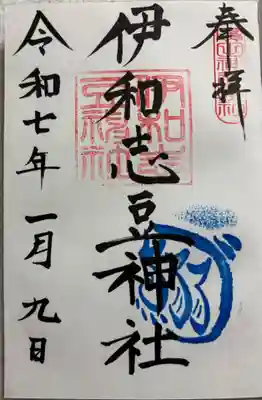 奉拝
伊和志豆神社
令和七年一月九日